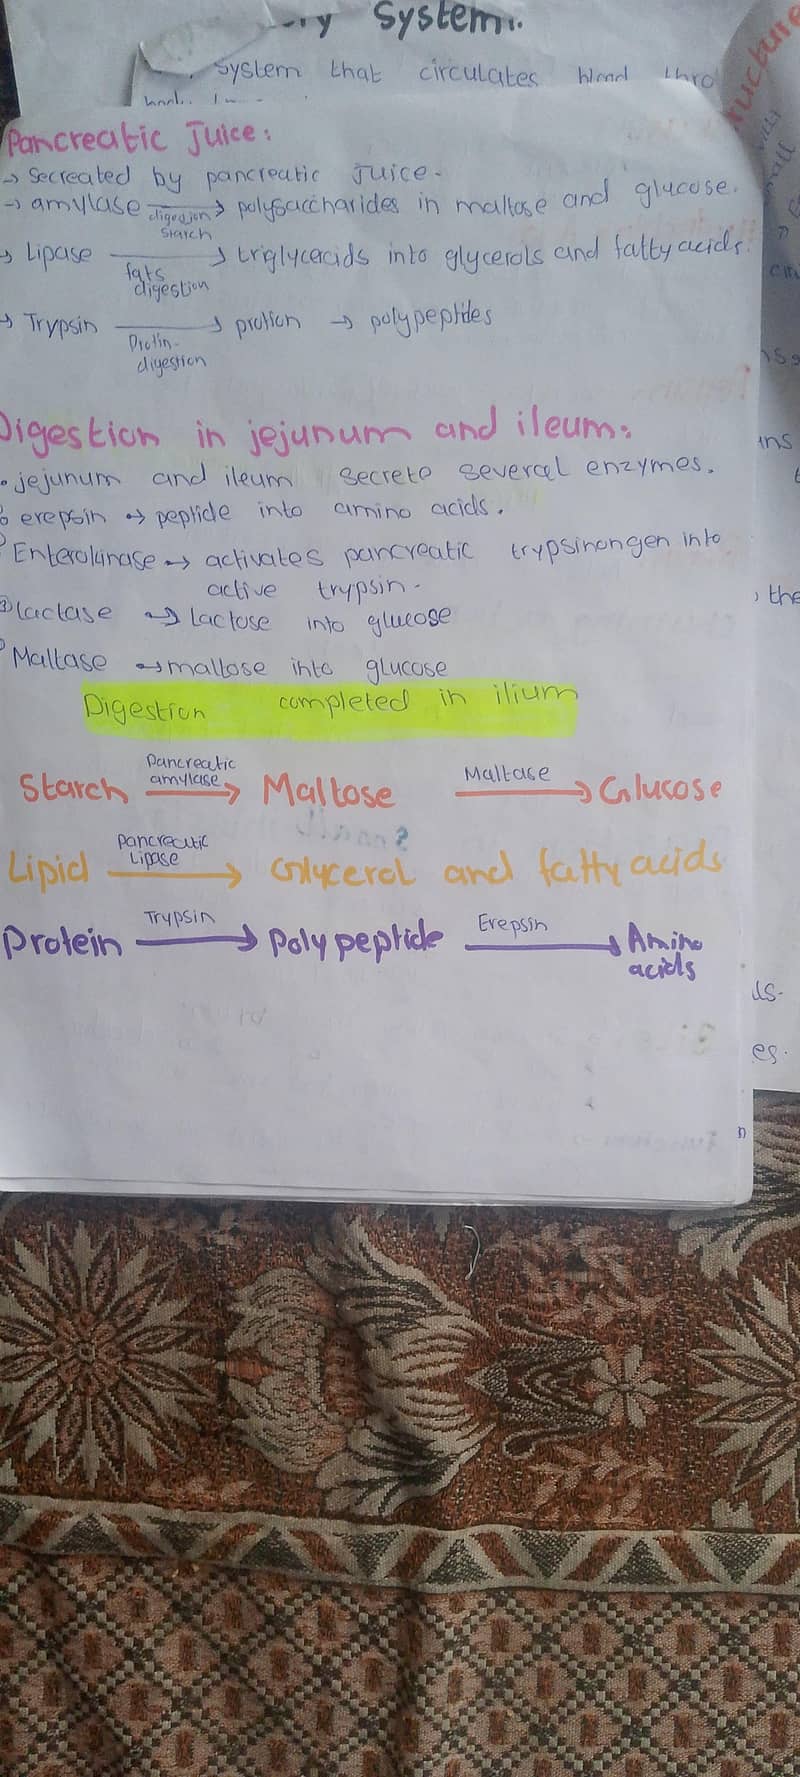 System..
System that circulates blood thro
ructure
Pancreatic Juice:
→ Secreated by pancreatic Juice.
→ amylase digestion starch → polysaccharides in maltose and glucose.
→ Lipase fats digestion → triglycerids into glycerols and fatty acids
→ Trypsin Protin- digestion → protien → polypeptides
Digestion in jejunum and ileum:
• jejunum and ileum secrete several enzymes.
erepsin → peptide into amino acids.
Enterokinase → activates pancreatic trypsinongen into
active trypsin.
lactase → Lactose into glucose
Maltase → maltose into glucose
Digestion completed in ilium
Starch Pancreatic amylase → Maltose Maltase → Glucose
Lipid pancreatic Lipase → Glycerol and fatty acids
Protein Trypsin → Poly peptide Erepsin → Amino
acids
the
es.